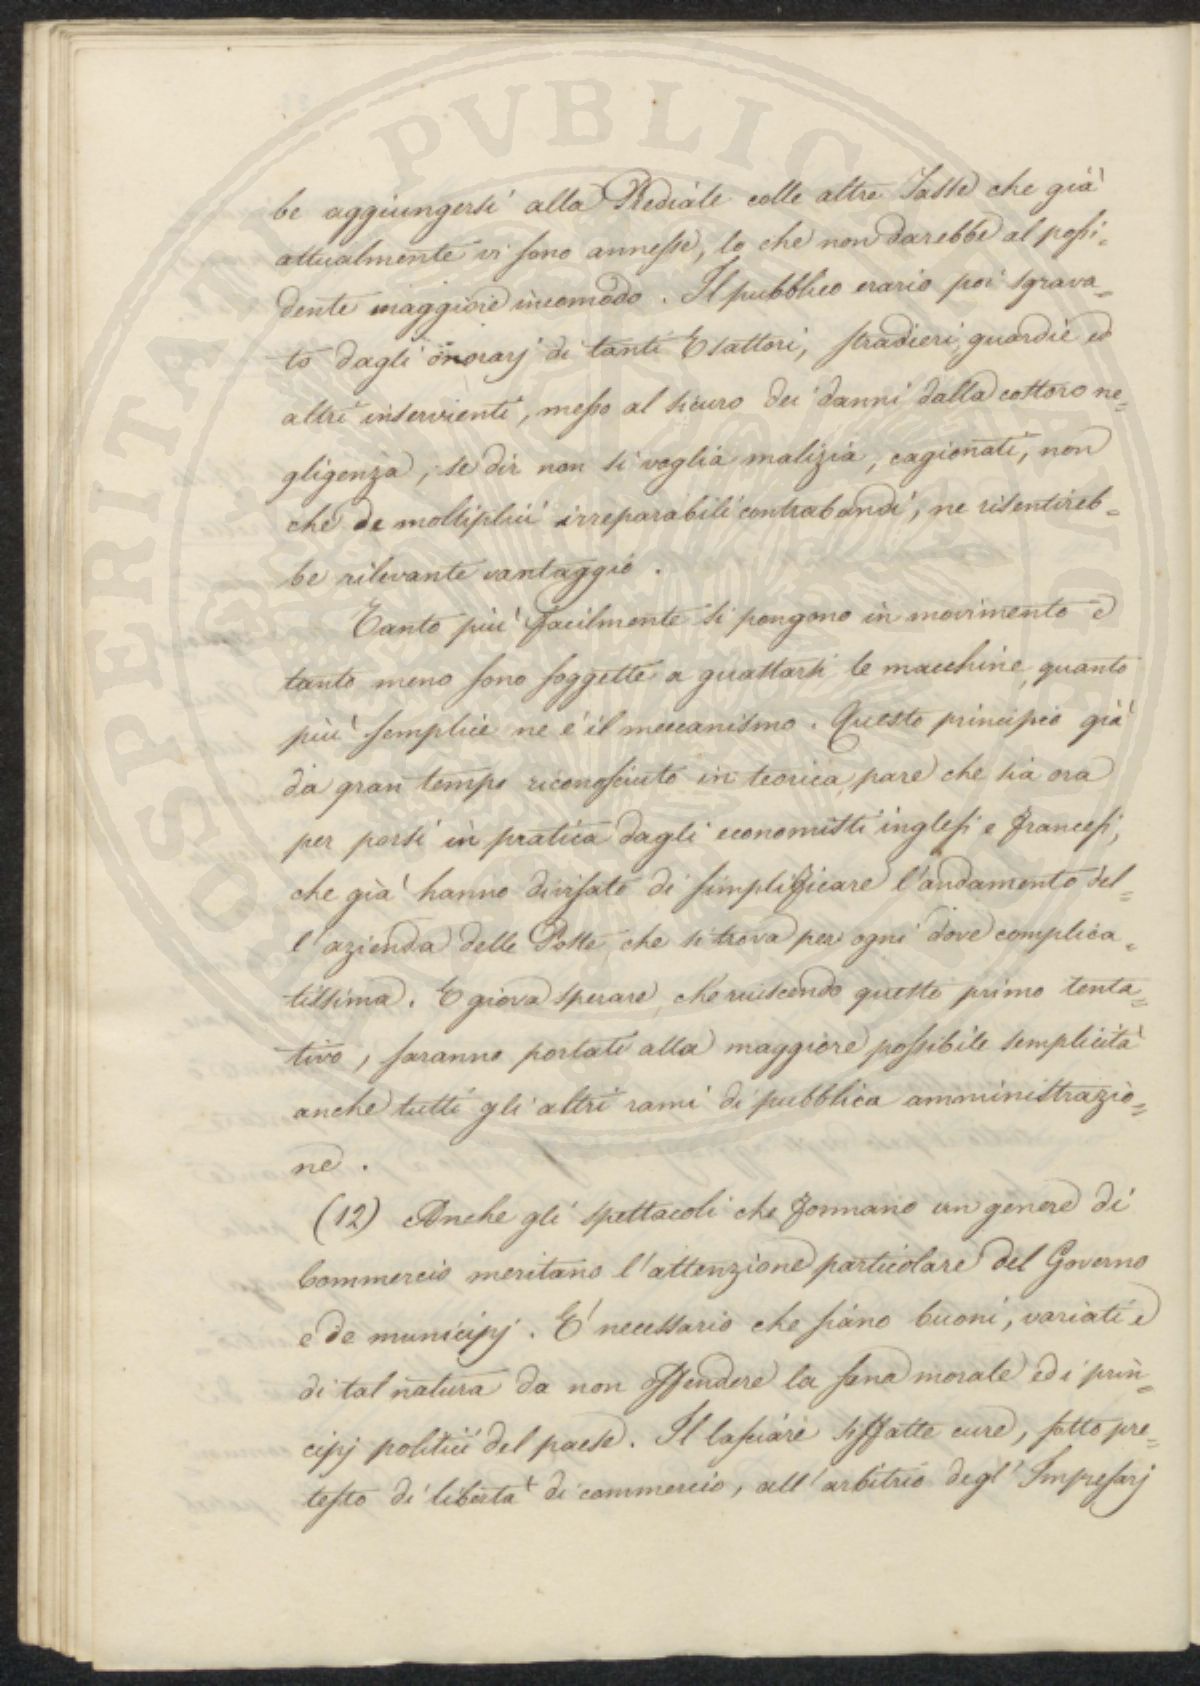 be aggiungersi alla Prediale colle altre Tasse che già
attualmente vi sono annesse, lo che non darebbe al possi-
dente maggiore incomodo. Il pubblico erario poi sgrava=
to dagli onorarj di tanti Esattori, stradieri, guardie ed
altri inservienti, messo al sicuro dei danni dalla costoro ne=
gligenza, se dir non si voglia malizia, cagionati, non
che de moltiplici irreparabili contrabandi, ne risentireb=
be rilevante vantaggio.
Tanto più facilmente si pongono in movimento e
tanto meno sono soggette a guattarsi le macchine, quanto
più semplice ne è il meccanismo. Questo principio già
da gran tempo riconosciuto in teorica, pare che sia ora
per porsi in pratica dagli economisti inglesi e francesi,
che già hanno divisato di simplificare l'andamento del=
l'azienda delle Poste, che si trova per ogni dove complica=
tissima. E giova sperare, che riuscendo questo primo tenta=
tivo, saranno portati alla maggiore possibile semplicità
anche tutti gli altri rami di pubblica amministrazio=
ne.
(12) Anche gli spettacoli che formano un genere di
Commercio meritano l'attenzione particolare del Governo
e de municipj. E' necessario che siano buoni, variati e
di tal natura da non offendere la sana morale ed i prin=
cipj politici del paese. Il lasciare siffatte cure, sotto pre=
testo di libertà di commercio, all'arbitrio degl'Impresarj
SPERITATI PVBLICAE